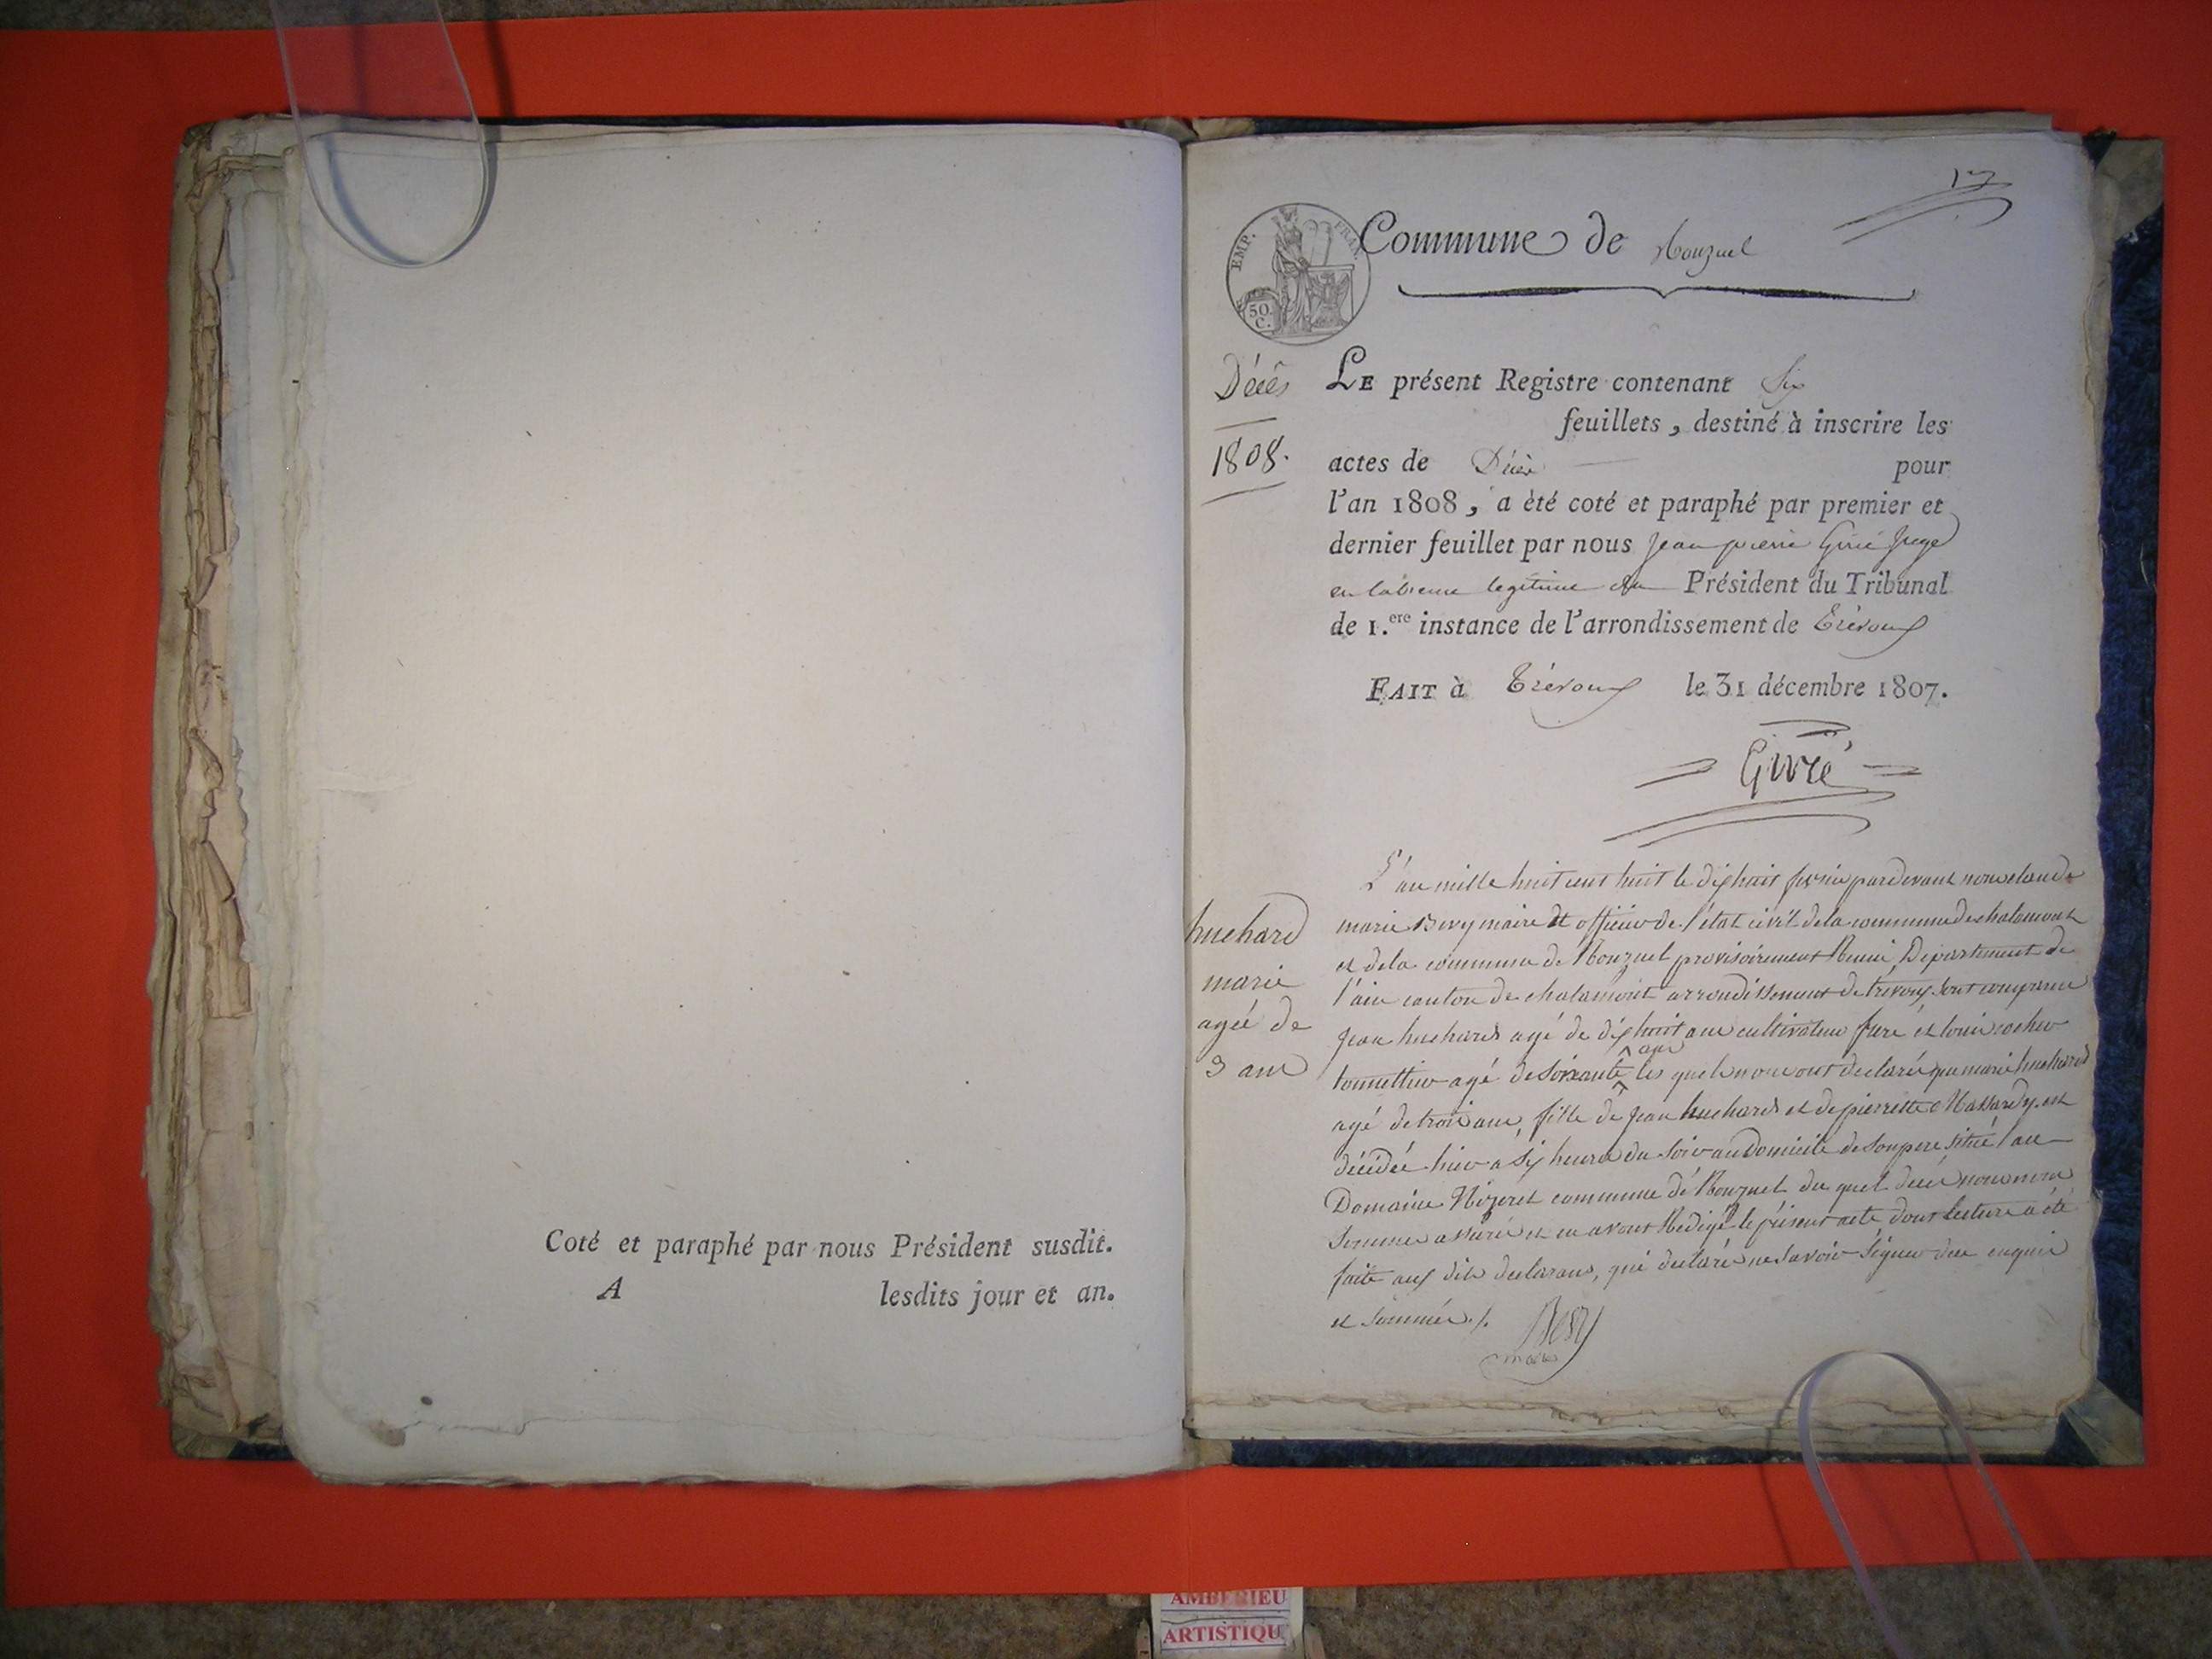 Coté et paraphé par nous Président susdit.
A lesdits jour et an.
EMP. FRAN.
50.
C.
Commune de Ronzuel
Décès
1808.
LE présent Registre contenant Six
feuillets, destiné à inscrire les
actes de Décès pour
l'an 1808, a été coté et paraphé par premier et
dernier feuillet par nous Jean pierre Givré Juge
en labsence legitime du Président du Tribunal
de 1.ere instance de l'arrondissement de Trévoux
FAIT à Trévoux le 31 décembre 1807.
Givré
huchard
marie
ageé de
3 ans
L'an mille huit cent huit le dix huit pardevant nous claude
marie Bery maire et officier de l'état civil de la commune de chalamont
et de la commune de Ronzuel provisoirement Réuni, Département de
l'ain canton de chalamont arrondissement de trévoux sont comparus
jean huchard agé de dix huit ans cultivateur frere et louis cocher
tonnellier agé de soixante ans les quels nous ont declaré que marie huchard
agé de trois ans, fille de jean huchard et de pierrette Massardy est
décédée hier a six heures du soir au Domicile de son pere situé au
Domaine Nizeret commune de Ronzuel du quel decès nous nous
sommes assuré et en avons Redigé le présent acte dont lecture a été
faite aux dits declarans, qui declaré ne savoir signer de ce enquis
et sommés ./.
Bery
maire
AMBERIEU
ARTISTIQU